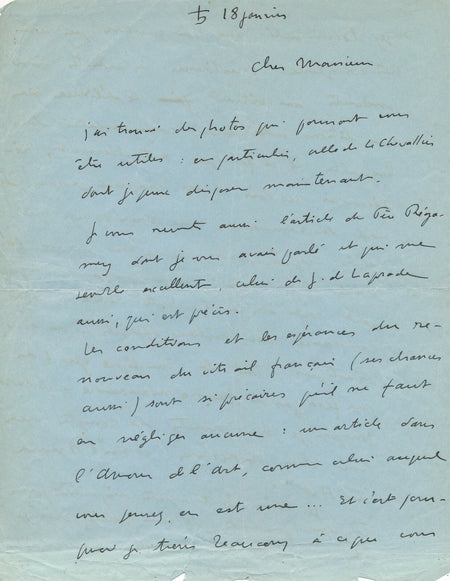 18 janvier
Cher Monsieur
j'ai trouvé des photos qui pourront vous
être utiles : en particulier, celle de Le Chevallier
dont je peux disposer maintenant.
Je vous remets aussi l'article du Père Réga-
mey dont je vous avais parlé et qui me
semble excellent, celui de J. de Laprade
aussi, qui est précis.
Les conditions et les espérances du re-
nouveau du vitrail français (ses chances
aussi) sont si précaires qu'il ne faut
en négliger aucune : un article dans
l'Amour de l'Art, comme celui auquel
vous pensez, en est une ... Et c'est pour-
quoi je tiens beaucoup à ce que vous